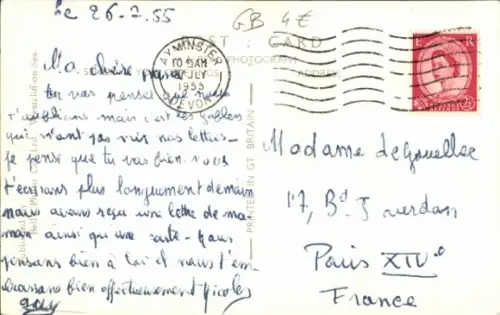 Le 26-7.55
GB 4€
POST CARD
PHOTOGRAPH
ADDRESS
AXMINSTER
10 45 AM
27 JLY
1955
DEVON
E R
Ma chère
tu vas penser que nous
t'oublions mais c'est les
qui n'ont pas mis nos lettres
je pense que tu vas bien. nous
t'écrirons plus longuement demain
nous avons reçu une lettre de ma-
man ainsi qu'une carte. nous
pensons bien à toi et nous t'em-
brassons bien affectueusement Nicole
guy
PRINTED IN GT. BRITAIN
Madame
17, Bd Jourdan
Paris XIVe
France